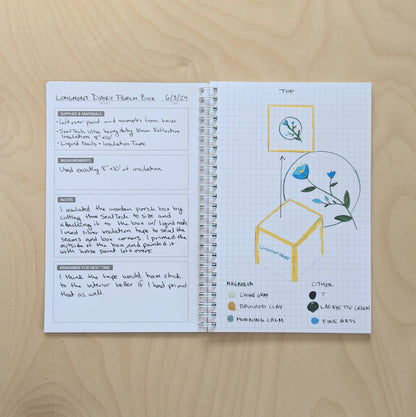 LONGMONT DAIRY PORCH BOX 6/3/24
SUPPLIES & MATERIALS
• Left over paint and remnants from house
• SealTech Ultra heavy duty 10mm Reflective
Insulation 8" x 10'
• Liquid Nails + Insulation Tape
MEASUREMENTS
Used exactly 8" x 10' of insulation
NOTES
I insulated the wooden porch box by
cutting the SealTech to size and
attaching it to the box w/ liquid nails.
I used silver insulation tape to seal the
seams and box corners. I primed the
outside of the box and painted it
with house paint left overs.
REMEMBER FOR NEXT TIME
I think the tape would have stuck
to the interior better if I had primed
that as well.
TOP
LONGMONT DAIRY
MAGNOLIA
CHINE GRAY
BRUSHED CLAY
MORNING CALM
OTHER
?
LAFAYETTE GREEN
FINE ARTS